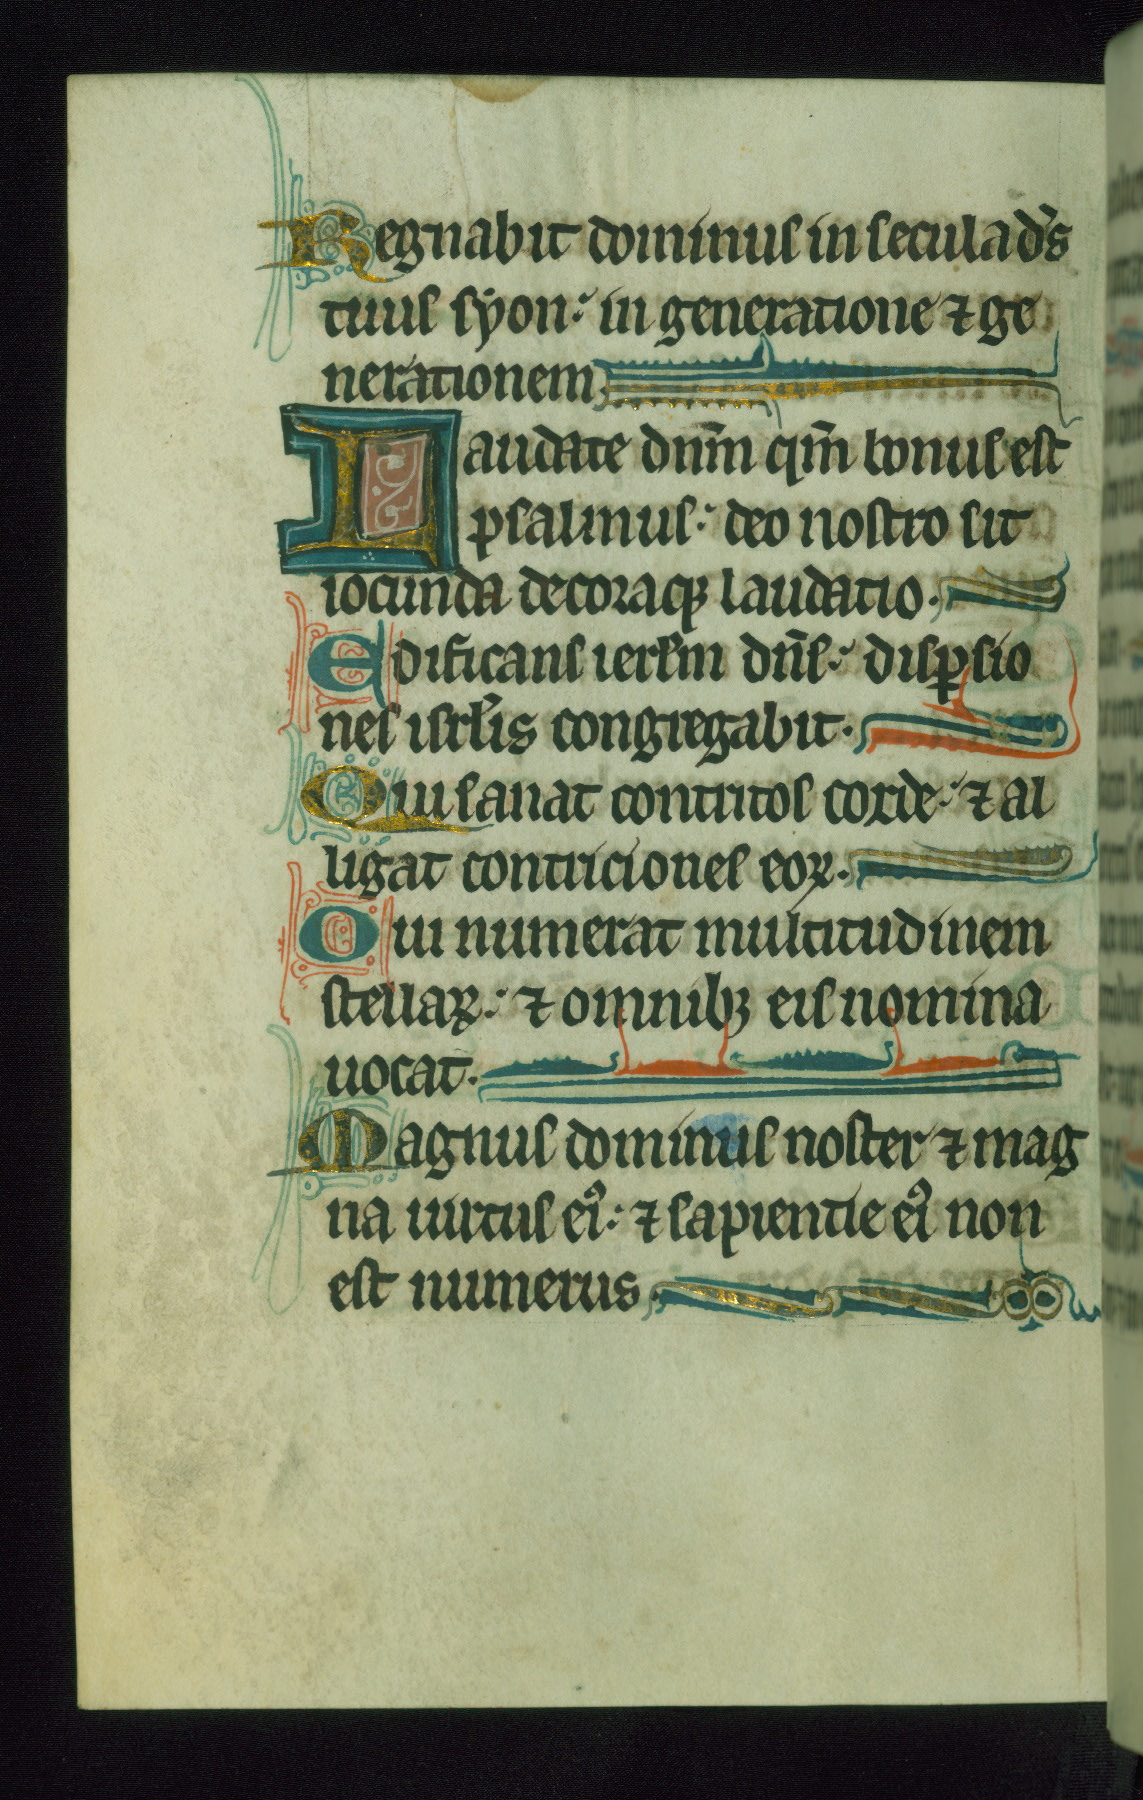 Regnabit dominus in secula ds̄
tuus syon: in generatione ⁊ ge
nerationem.
Laudate dnm̄ qm̄ bonus est
psalmus: deo nostro sit
iocunda decoraq; laudatio.
Edificans ierłm dns̄: disꝑsio
nes isrłis congregabit.
Qui sanat contritos corde: ⁊ al
ligat contriciones eoꝝ.
Qui numerat multitudinem
stellaꝝ: ⁊ omnibꝫ eis nomina
uocat.
Magnus dominus noster ⁊ mag
na uirtus eiꝰ: ⁊ sapientie eiꝰ non
est numerus.